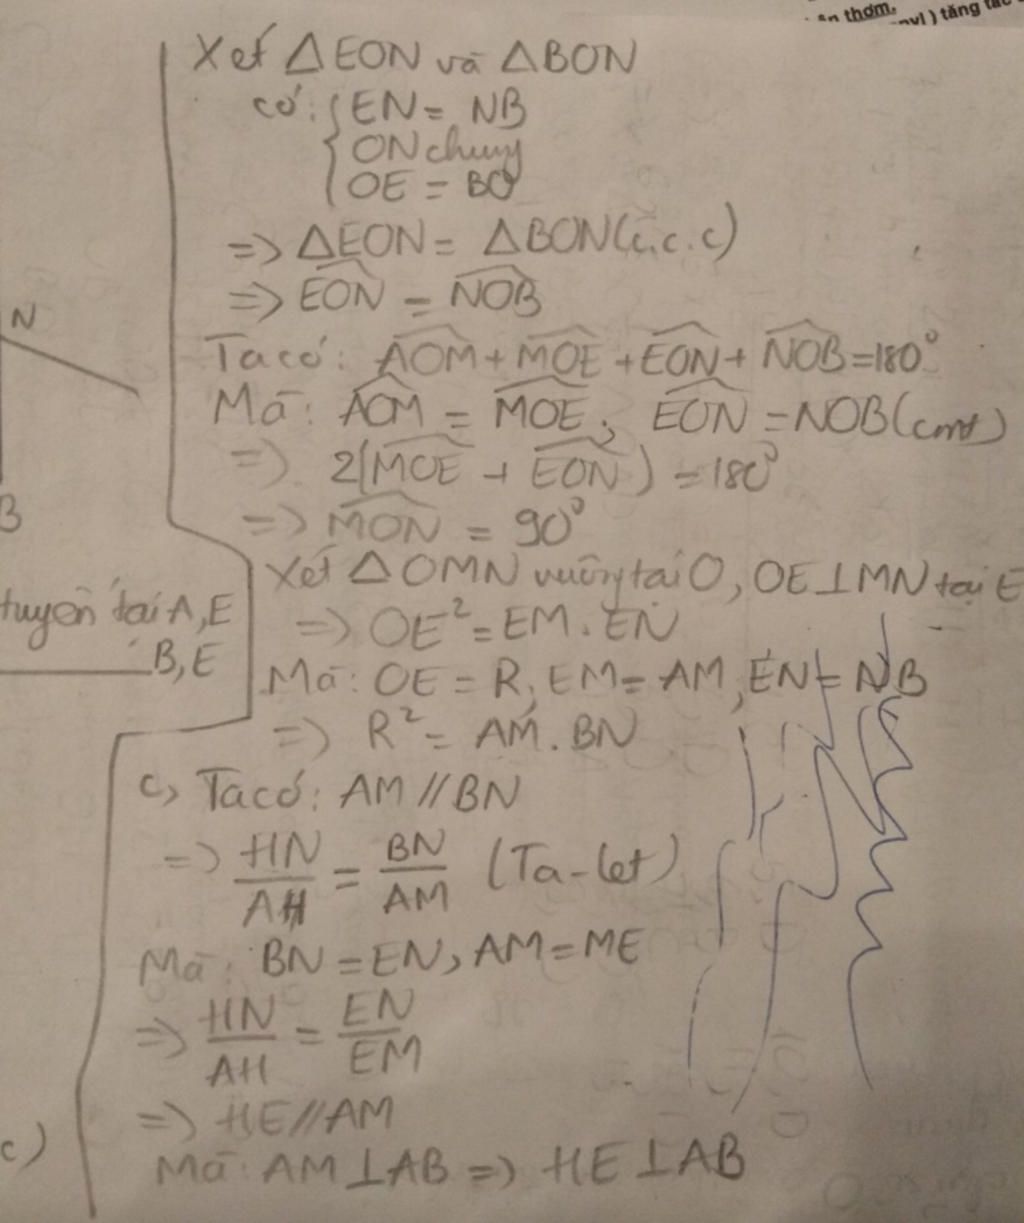 ên thơm.
) tăng
Xét △EON và △BON
có: { EN = NB
ON chung
OE = BO
=> △EON = △BON (c.c.c)
=> EON = NOB
Ta có: AOM + MOE + EON + NOB = 180°
Mà: AOM = MOE; EON = NOB (cmt)
=> 2(MOE + EON) = 180°
=> MON = 90°
Xét △OMN vuông tại O, OE⊥MN tại E
=> OE² = EM. EN
Mà: OE = R, EM = AM, EN = NB
=> R² = AM. BN
c, Ta có: AM // BN
=> HN/AH = BN/AM (Ta-let)
Mà: BN = EN, AM = ME
=> HN/AH = EN/EM
=> HE // AM
Mà: AM⊥AB => HE⊥AB
N
B
tuyến tại A, E
B, E
c)